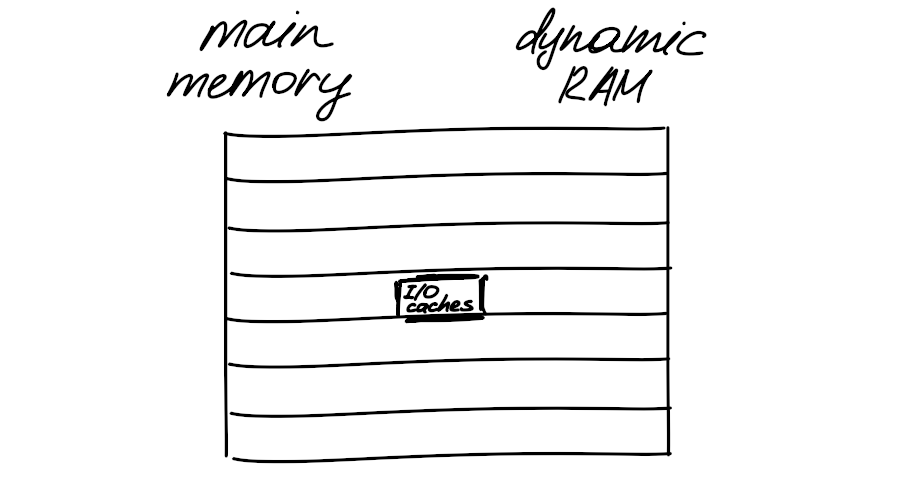 main
memory
dynamic
RAM
I/O
caches